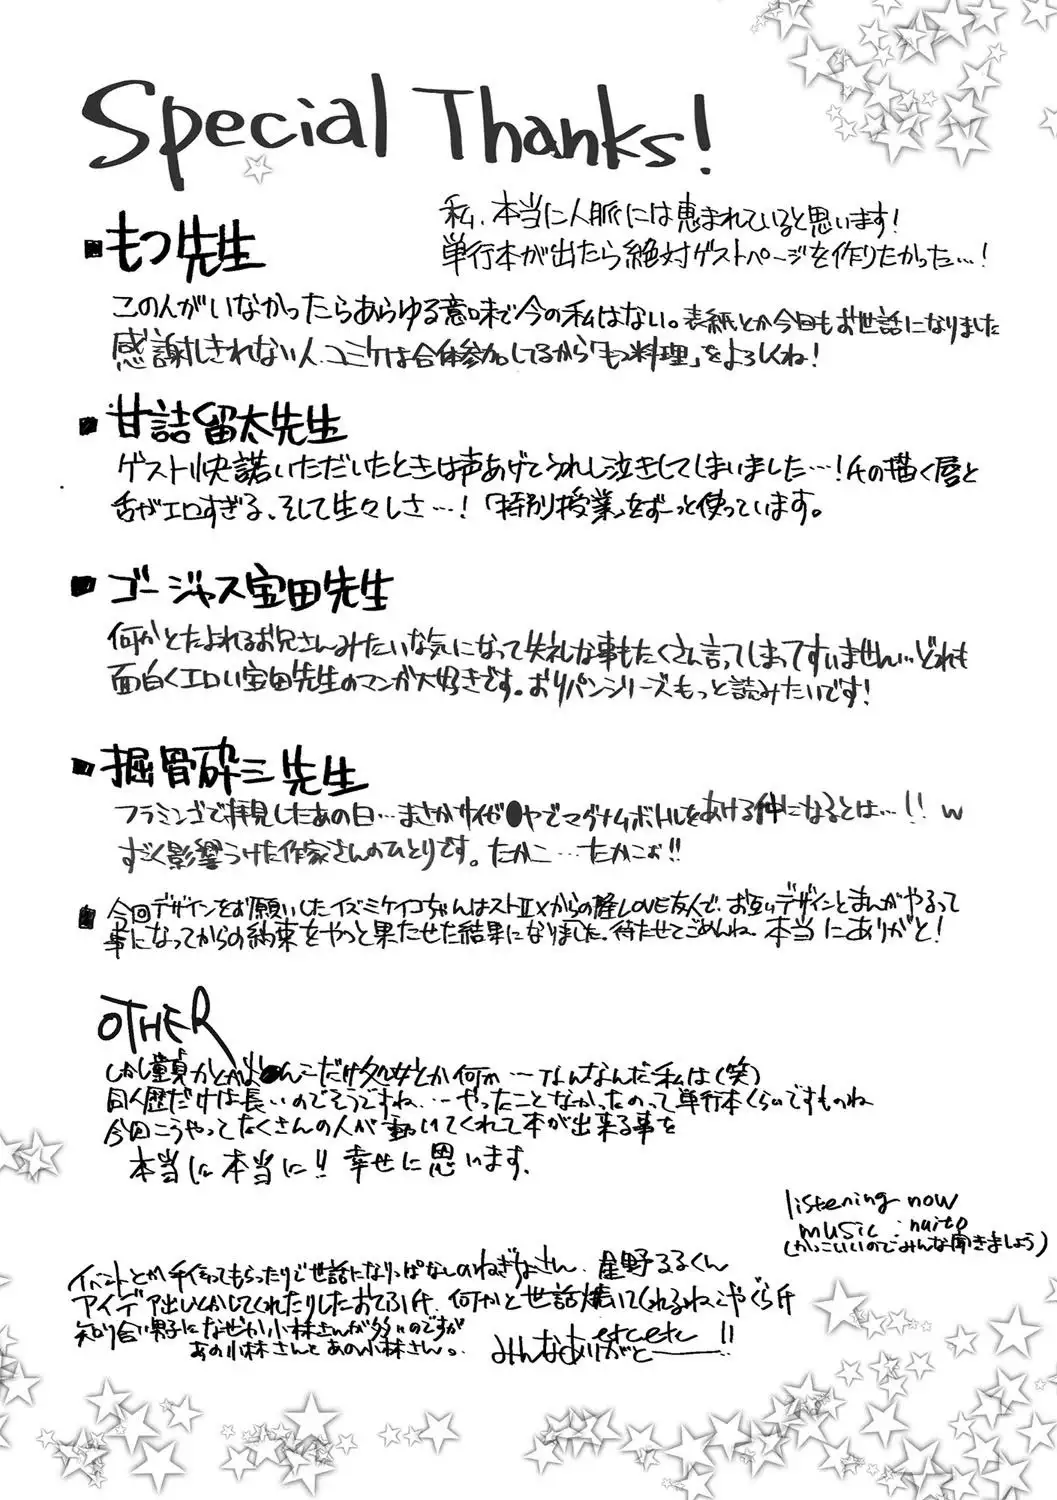 Special Thanks!
私、本当に人脈には恵まれていると思います!
単行本が出たら絶対ゲストページを作りたかった…!
■もつ先生
この人がいなかったらあらゆる意味で今の私はない。表紙とか今回もお世話になりました
感謝しきれない人。コミケは合体参加してるから「もつ料理」をよろしくね!
■甘詰留太先生
ゲスト快諾いただいたときは声あげてうれし泣きしてしまいました…!氏の描く唇と
舌がエロすぎる、そして生々しさ…!「特別授業」をずーっと使っています。
■ゴージャス宝田先生
何かとたよれるお兄さんみたいな気になって失礼な事もたくさん言ってしまってすいません…どれも
面白くエロい宝田先生のマンガ大好きです。おりパンシリーズもっと読みたいです!
■掘骨砕三先生
フラミンゴで拝見したあの日…まさかサイゼ●ヤでマグナムボトルをあける仲になるとは…!!w
すごく影響うけた作家さんのひとりです。たかこ…たかこぉ!!
■今回デザインをお願いしたイズミケイコちゃんはストⅡXからの LOVE友人で、お互いデザインとまんがやるって
事になってからの約束をやっと果たせた結果になりました。待たせてごめんね、本当にありがと!
OTHER
しかし童貞かとか ●んこだけ処女とか何か…なんなんだ私は(笑)
同人歴だけは長いのでそうですね…やったことなかったのって単行本くらいですものね
今回こうやってたくさんの人が動いてくれて本が出来る事を
本当に本当に!!幸せに思います。
listening now
music:naito
(かっこいいのでみんな聞きましょう)
イベントとか手伝ってもらったりで世話になりっぱなしのねぎなさん、星野るるくん
アイデア出しとかしてくれたりしたおてふ氏、何かと世話焼いてくれるねこやぐら氏
知り合い男子になぜか小林さんが多いのですが
あの小林さんとあの小林さん。
etcetc
みんなありがと――!!